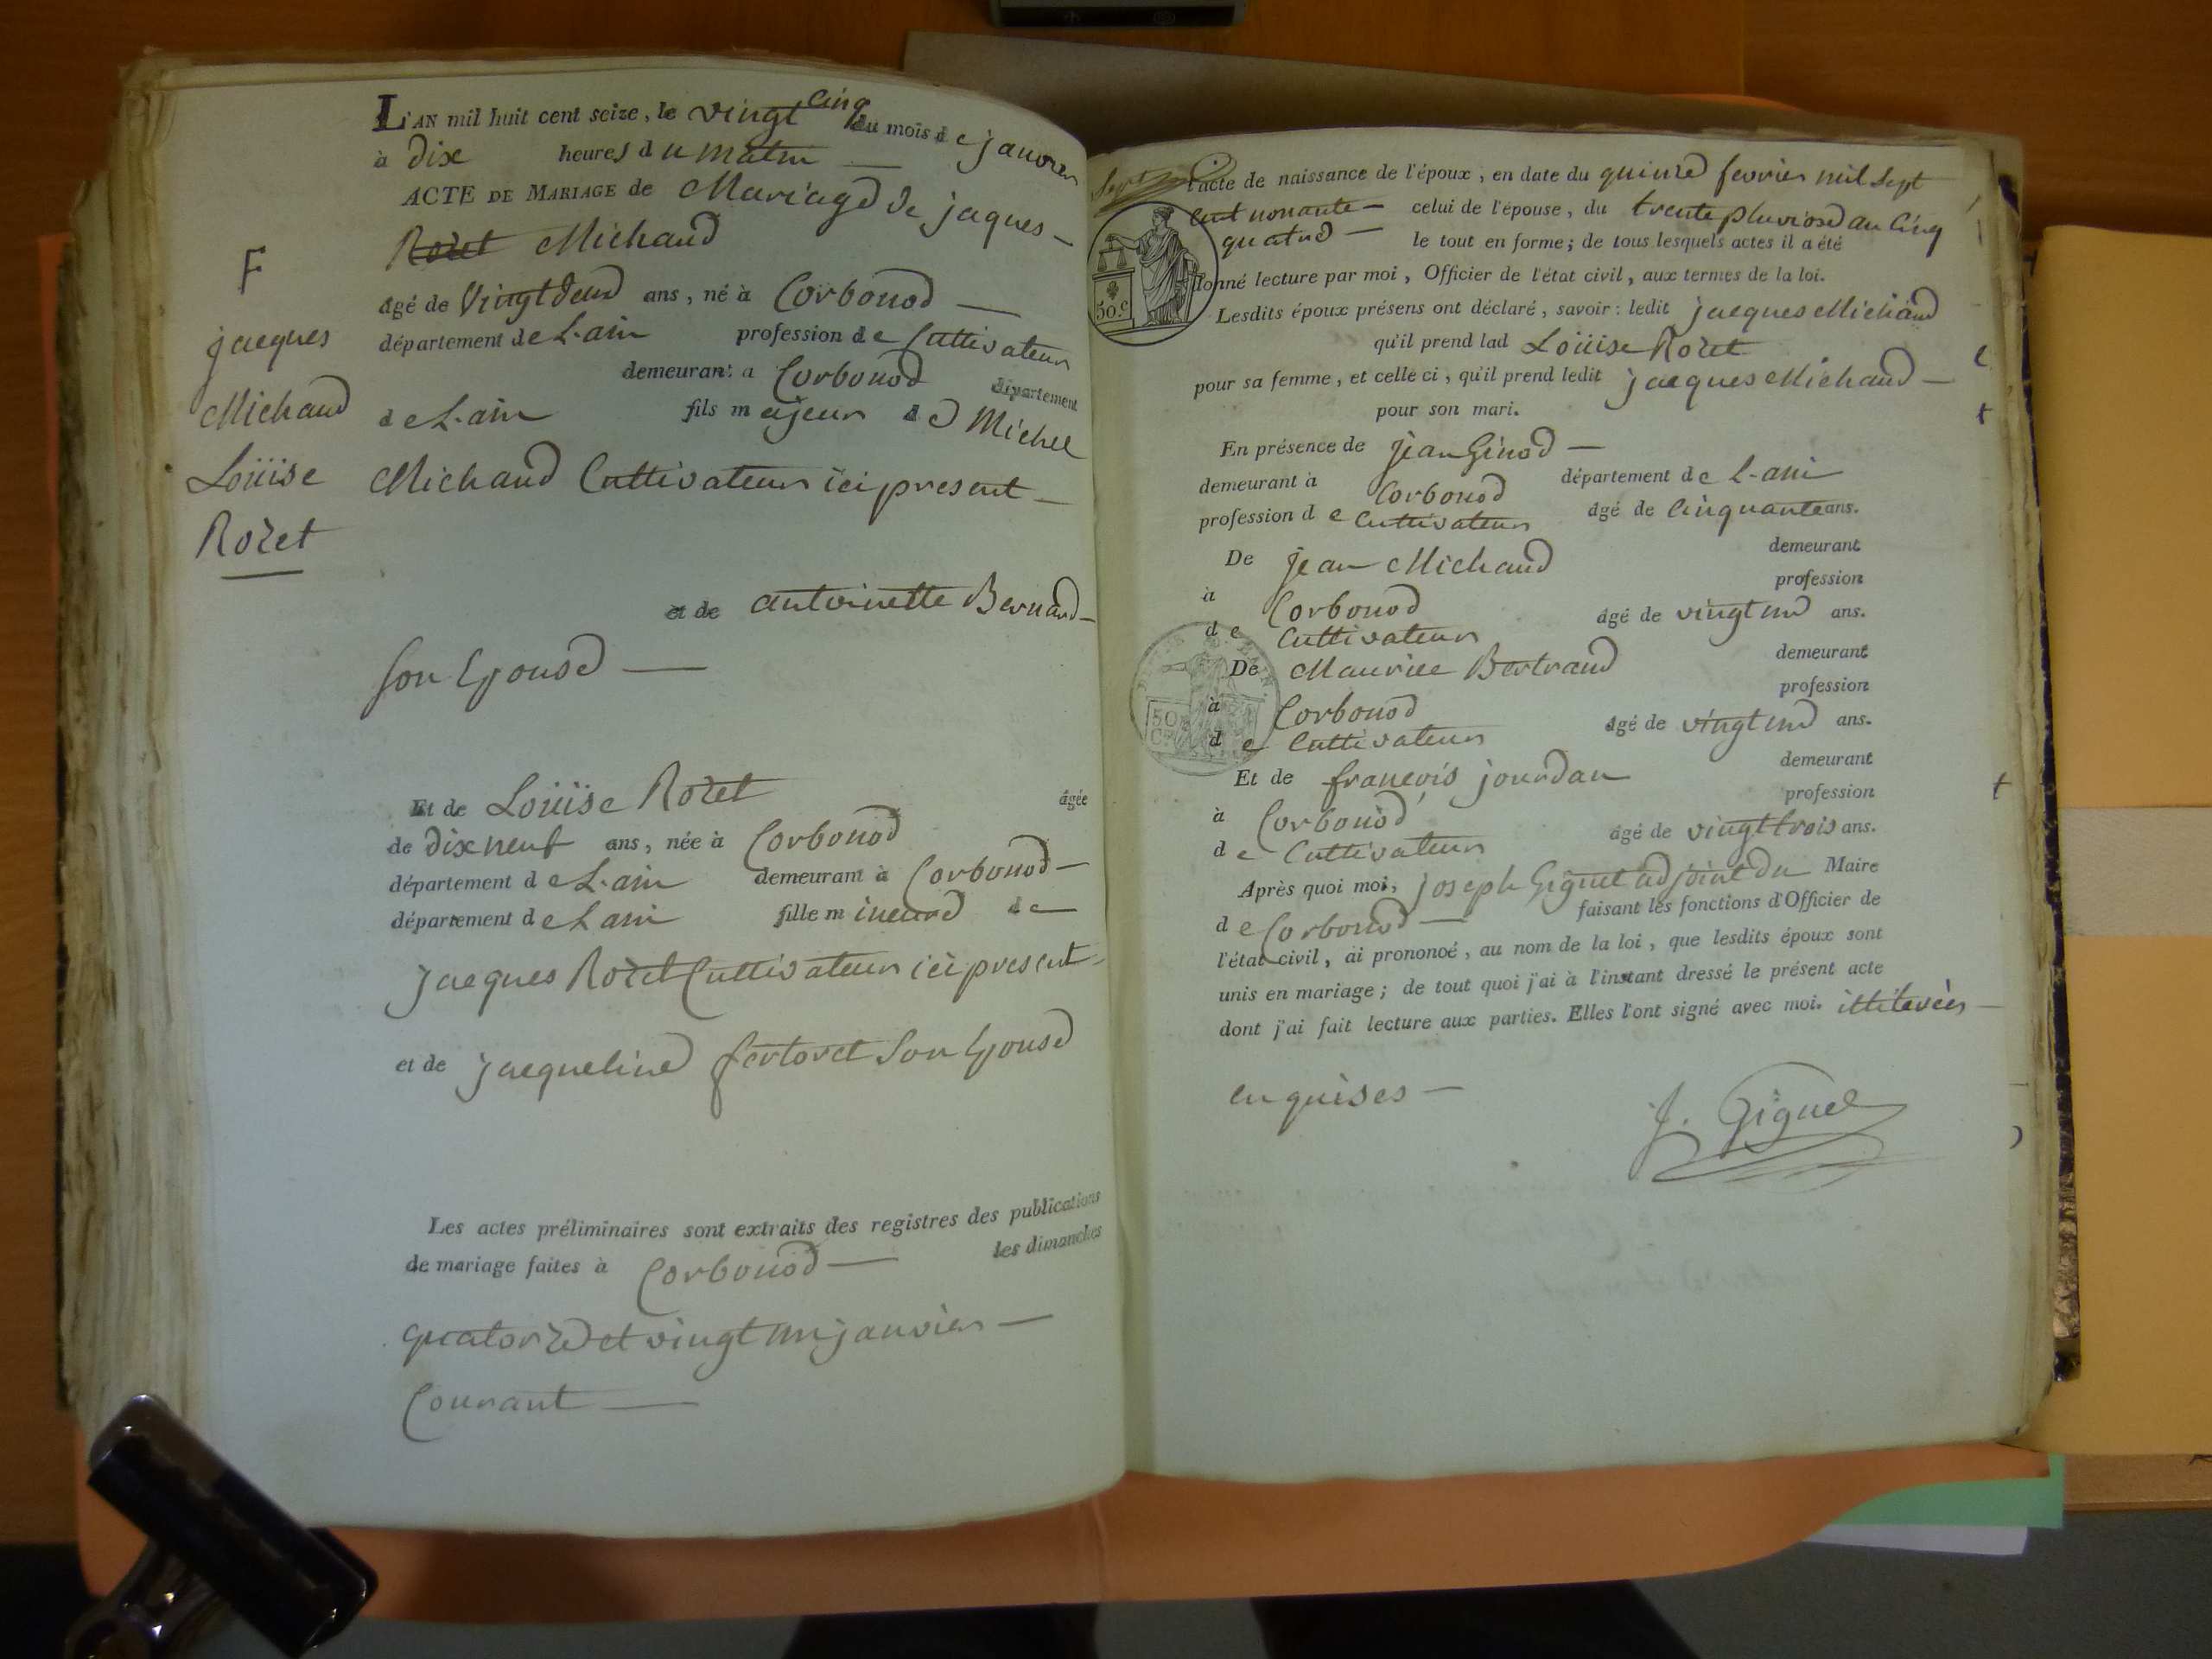 L'AN mil huit cent seize, le vingt cinq du mois de janvier
à dix heures du matin
ACTE DE MARIAGE de Mariage de jaques
Rozet Michaud
F
âgé de vingt deux ans, né à Corbonod
jacques
département de L'ain profession de Cultivateur
demeurant a Corbonod département
Michaud
de L'ain fils majeur de Michel
Loüise
Michaud Cultivateur ici present
Rozet
et de antoinette Bernard
son Epouse
Et de Loüise Rozet âgée
de dix neuf ans, née à Corbonod
département de L'ain demeurant à Corbonod
département de Lain fille mineure de
jacques Rozet Cultivateur ici present
et de jacqueline fertoret son Epouse
Les actes préliminaires sont extraits des registres des publications
de mariage faites à Corbonod les dimanches
quatorze et vingt un janvier
Courant
l'acte de naissance de l'époux, en date du quinze fevrier mil sept
cent nonante celui de l'épouse, du trente pluviose an Cinq
quatre le tout en forme; de tous lesquels actes il a été
donné lecture par moi, Officier de l'état civil, aux termes de la loi.
50.c
Lesdits époux présens ont déclaré, savoir: ledit jacques Michaud
qu'il prend lad Loüise Rozet
pour sa femme, et celle ci, qu'il prend ledit jacques Michaud
pour son mari.
En présence de jean Ginod
demeurant à Corbonod département de L'ain
profession de Cultivateur âgé de Cinquante ans.
De jean Michaud demeurant
à Corbonod profession
de Cultivateur âgé de vingt un ans.
De Maurice Bertrand demeurant
à Corbonod profession
50
de Cultivateur âgé de vingt un ans.
Et de françois jourdan demeurant
à Corbonod profession
de Cultivateur âgé de vingt trois ans.
Après quoi moi, joseph Giguet adjoint du Maire
de Corbonod faisant les fonctions d'Officier de
l'état civil, ai prononcé, au nom de la loi, que lesdits époux sont
unis en mariage; de tout quoi j'ai à l'instant dressé le présent acte
dont j'ai fait lecture aux parties. Elles l'ont signé avec moi. illiterées
enquises
J. Giguet